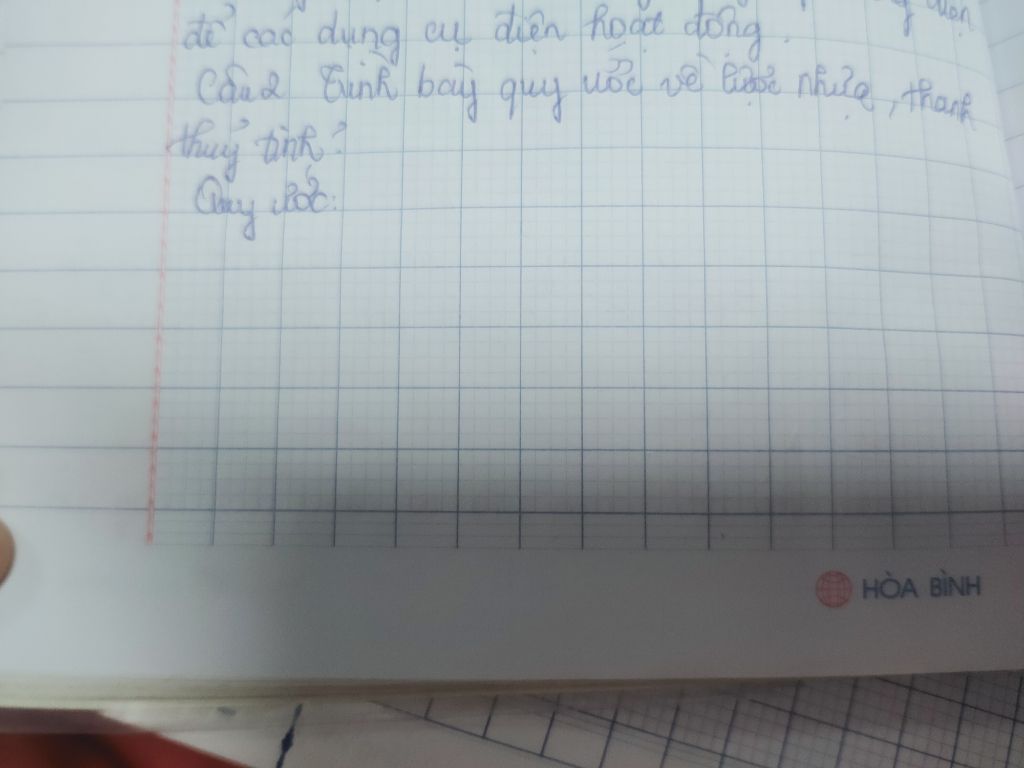 để các dụng cụ điện hoạt động.
Câu 2 Trình bày quy ước về lược nhựa, thanh
thuỷ tinh?
Quy ước:
HÒA BÌNH